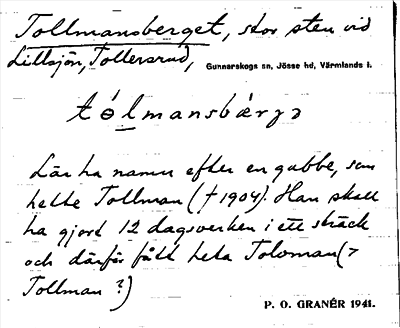 Tollmansberget, stor sten vid
Lillsjön, Tollersrud, Gunnarskogs sn, Jösse hd, Värmlands l.
tɵ́lmansbærjə
Lär ha namn efter en gubbe, som
hette Tollman († 1904). Han skall
ha gjort 12 dagsverken i ett sträck
och därför fått heta Tolvman (>
Tollman?)
P. O. GRANÉR 1941.